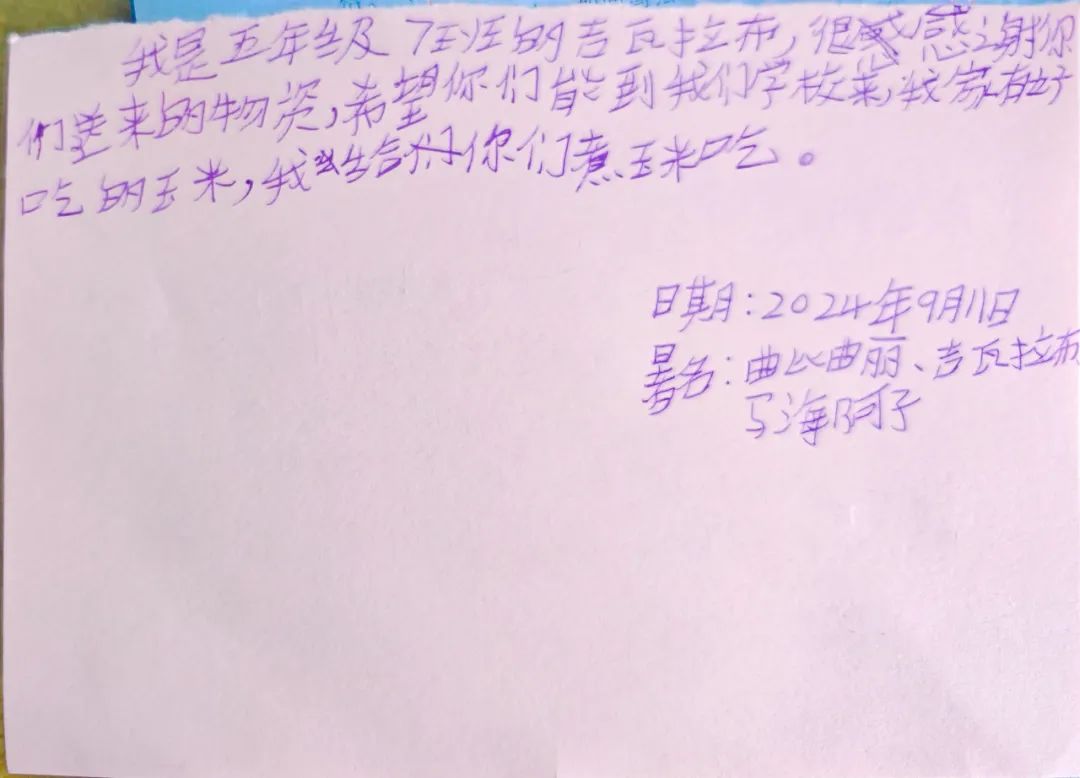 我是五年级7班的吉瓦拉布,很感谢你
们送来的物资,希望你们能到我们学校来,我家有好
吃的玉米,我给你们煮玉米吃。
日期:2024年9月11日
署名:曲比曲丽、吉瓦拉布
马海阿子